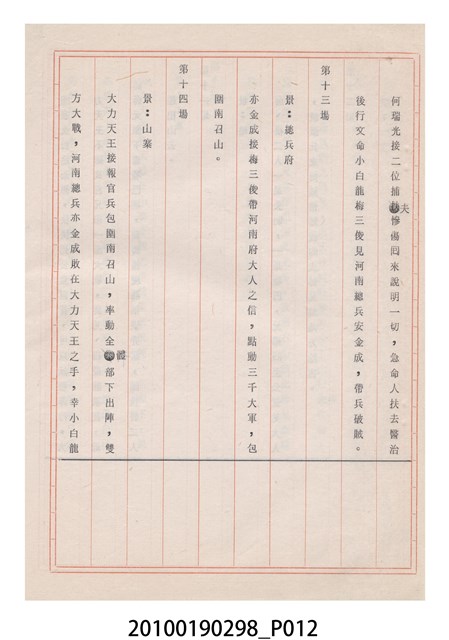 何瑞光接二位捕夫慘傷囘來說明一切，急命人扶去醫治
後行文命小白龍梅三俊見河南總兵安金成，帶兵破賊。
第十三場
景：總兵府
亦金成接梅三俊帶河南府大人之信，點動三千大軍，包
圍南召山。
第十四場
景：山寨
大力天王接報官兵包圍南召山，率動全體部下出陣，雙
方大戰，河南總兵亦金成敗在大力天王之手，幸小白龍
20100190298_P012